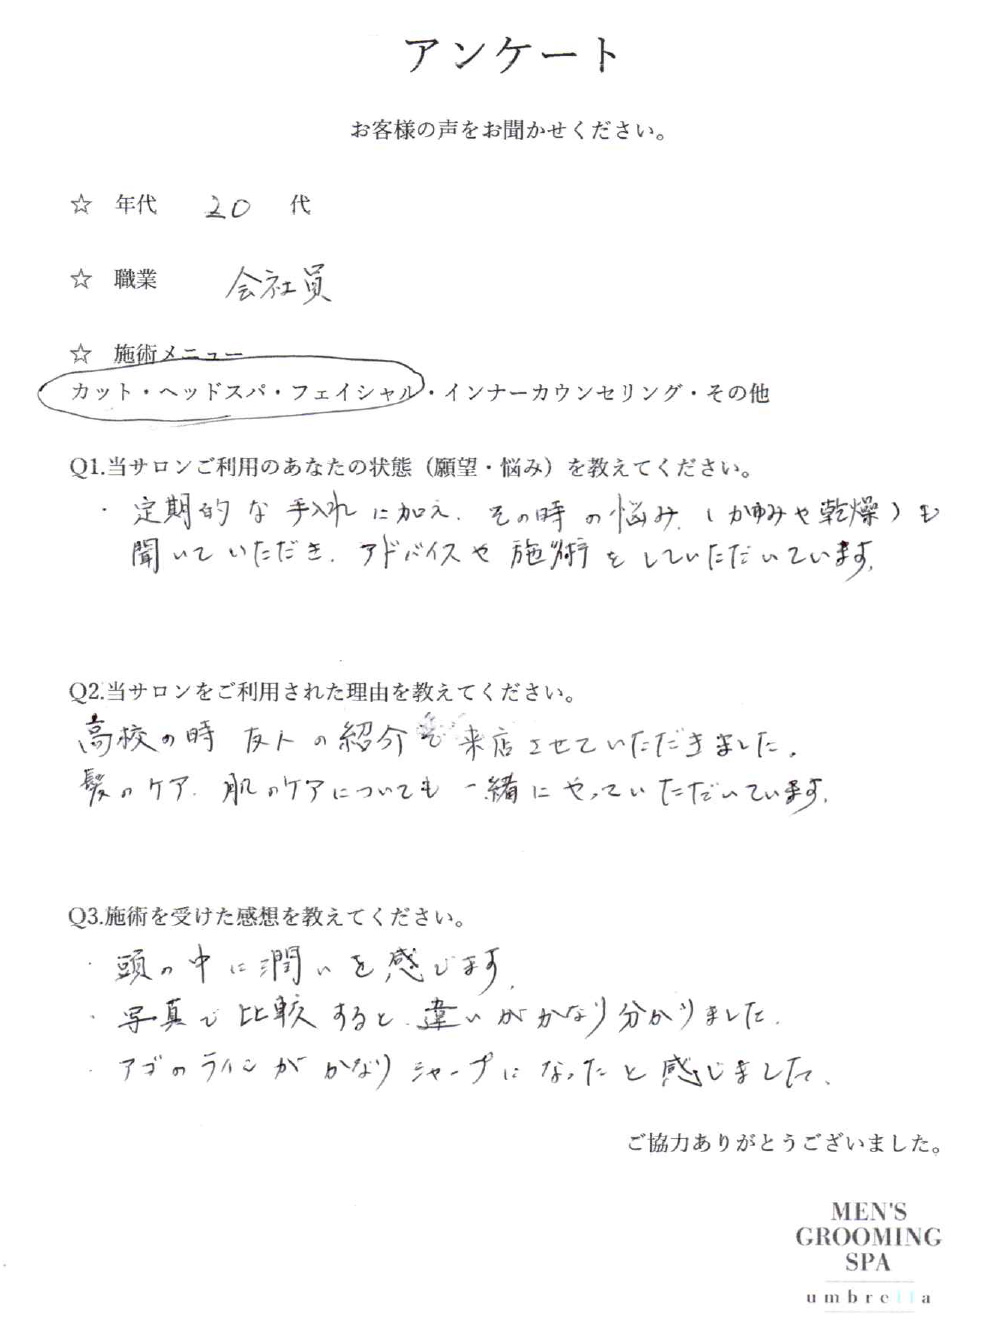 アンケート
お客様の声をお聞かせください。
☆ 年代 20 代
☆ 職業 会社員
☆ 施術メニュー
カット・ヘッドスパ・フェイシャル・インナーカウンセリング・その他
Q1.当サロンご利用のあなたの状態（願望・悩み）を教えてください。
・定期的な手入れに加え、その時の悩み、（かゆみや乾燥）も
聞いていただき、アドバイスや施術をしていただいています。
Q2.当サロンをご利用された理由を教えてください。
高校の時 友人の紹介で来店させていただきました。
髪のケア、肌のケアについても一緒にやっていただいています。
Q3.施術を受けた感想を教えてください。
・頭の中に潤いを感じます。
・写真で比較すると、違いがかなり分かりました。
・アゴのラインがかなりシャープになったと感じました。
ご協力ありがとうございました。
MEN'S
GROOMING
SPA
umbrella